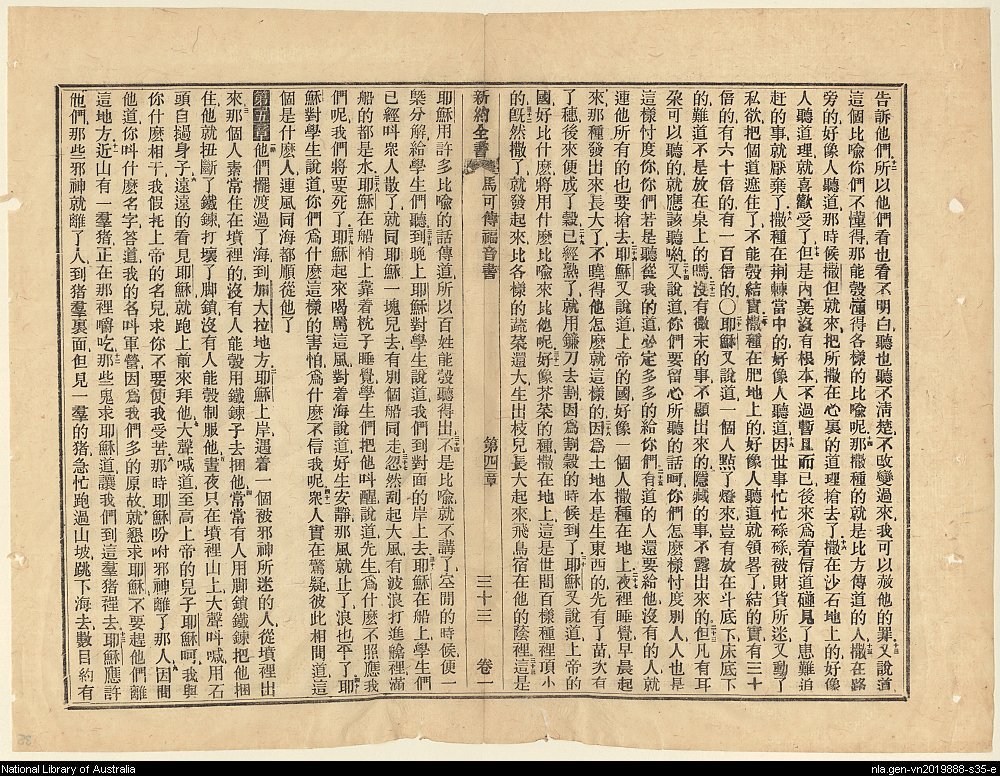 告訴他們所以他們看也看不明白聽也聽不清楚不改變過來我可以赦他的罪又說道
這個比喻你們不懂得那能彀懂得各樣的比喻呢那撒種的就是比方傳道的人撒在路
旁的好像人聽道那時候撒但就來把所撒在心裏的道理搶去了撒在沙石地上的好像
人聽道理就喜歡受了但是內裏沒有根本不過暫且而已後來爲着信道碰見了患難追
趕的事就厭棄了撒種在荆棘當中的好像人聽道因世事忙忙碌碌被財貨所迷又動了
私欲把個道遮住了不能彀結實撒種在肥地上的好像人聽道就領畧了結的實有三十
倍的有六十倍的有一百倍的〇耶穌又說道一個人點了燈來豈有放在斗底下床底下
的難道不是放在桌上的嗎沒有微末的事不顯出來的隱藏的事不露出來的但凡有耳
朶可以聽的就應該聽喲又說道你們要留心所聽的話呵你們怎麼樣忖度別人人也是
這樣忖度你你們若是聽從我的道必定多多的給你們有道的人還要給他沒有的人就
連他所有的也要搶去耶穌又說道上帝的國好像一個人撒種在地上夜裡睡覺早晨起
來那種發出來長大了不曉得他怎麼就這樣的因爲土地本是生東西的先有了苗次有
了穗後來便成了穀已經熟了就用鐮刀去割因爲割穀的時候到了耶穌又說道上帝的
國好比什麼將用什麼比喻來比他呢好像芥菜的種撒在地上這是世間百樣種裡頂小
的旣然撒了就發起來比各樣的蔬菜還大生出枝兒長大起來飛鳥宿在他的蔭裡這是
新約全書 馬可傳福音書 第四章 三十三 卷一
耶穌用許多比喻的話傳道所以百姓能彀聽得出不是比喻就不講了空閒的時候便一
槩分解給學生們聽到晚上耶穌對學生說道我們到對面的岸上去耶穌在船上學生們
已經呌衆人散了就同耶穌一塊兒去有別個船同走忽然刮起大風有波浪打進艙裡滿
船的都是水耶穌在船梢上靠着枕子睡覺學生們把他呌醒說道先生爲什麼不照應我
們呢我們將要死了耶穌起來喝罵這風對着海說道好生安靜那風就止了浪也平了耶
穌對學生說道你們爲什麼這樣的害怕爲什麼不信我呢衆人實在驚疑彼此相問道這
個是什麼人連風同海都順從他了
第五章他們擺渡過了海到加大拉地方耶穌上岸遇着一個被邪神所迷的人從墳裡出
來那個人素常住在墳裡的沒有人能彀用鐵鍊子去捆他常常有人用脚鎖鐵鍊把他捆
住他就扭斷了鐵鍊打壞了脚鎖沒有人能彀制服他晝夜只在墳裡山上大聲呌喊用石
頭自撾身子遠遠的看見耶穌就跑上前來拜他大聲喊道至高上帝的兒子耶穌呵我與
你什麼相干我假托上帝的名兒求你不要使我受苦那時耶穌吩咐邪神離了那人因問
他道你呌什麼名字答道我的名呌軍營因爲我們多的原故就懇求耶穌不要趕他們離
這地方近山有一羣猪正在那裡嚼吃那些鬼求耶穌道讓我們到這羣猪裡去耶穌應許
他們那些邪神就離了人到猪羣裏面但見一羣的猪急忙跑過山坡跳下海去數目約有
National Library of Australia
nla.gen-vn2019888-s35-e